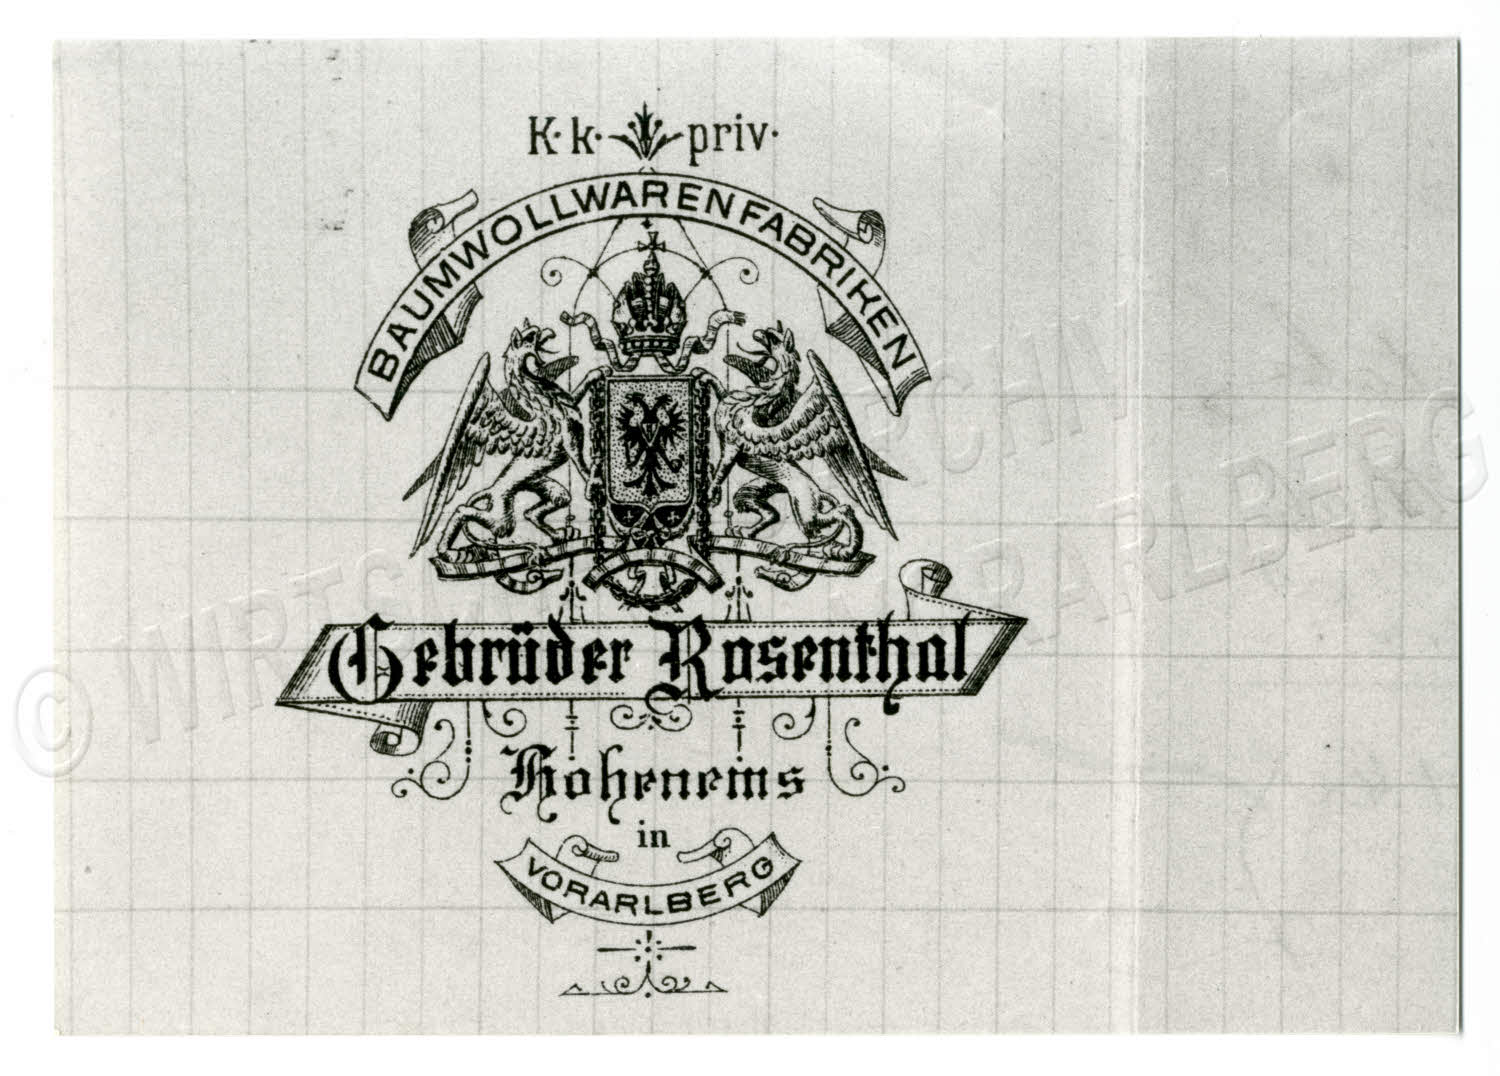 K. k. priv.
BAUMWOLLWARENFABRIKEN
Gebrüder Rosenthal
Hohenems
in
VORARLBERG
© WIRTSCHAFTSARCHIV VORARLBERG